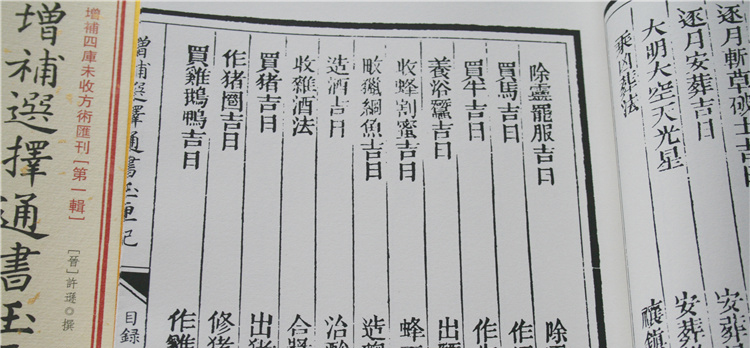 逐月斬草破土吉日
安葬
逐月安葬吉日
安葬
大明大空天光星
乘凶葬法
禳鎮
除靈罷服吉日
除
買馬吉日
作
買牛吉日
作
養浴蠶吉日
出
收蜂割蜜吉日
蜂
畋獵網魚吉日
造
造酒吉日
治
收雜酒法
合醬
買猪吉日
出猪
作猪圈吉日
修猪
買雞鵝鴨吉日
作雞
增補選擇通書玉匣記
目録
增補四庫未收方術匯刊[第一輯]
[晉]許遜◎撰
增補選擇通書玉